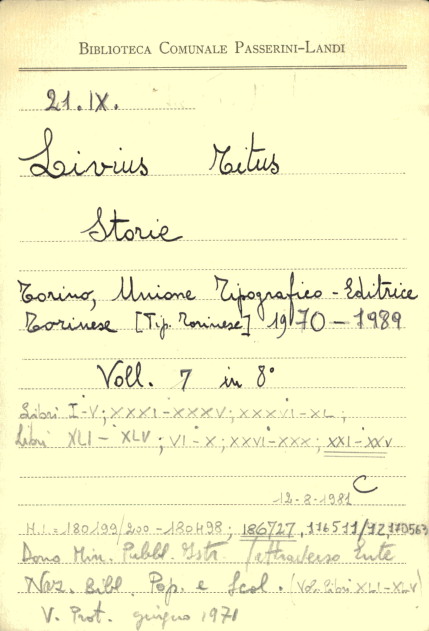 BIBLIOTECA COMUNALE PASSERINI-LANDI
21.IX.
Livius Titus
Storie
Torino, Unione Tipografico-Editrice
Torinese [Tip. Torinese] 1970-1989
Voll. 7 in 8°
Libri I-V; XXXI-XXXV; XXXVI-XL;
Libri XLI-XLV; VI-X; XXVI-XXX; XXI-XXV
C
12-8-1981
180199/200-180498; 186727, 116511/12, 170563
Dono Min. Pubbl. Istr. (attraverso Ente
Naz. Bibl. Pop. e Scol. (Vol. Libri XLI-XLV)
V. Prot. giugno 1971